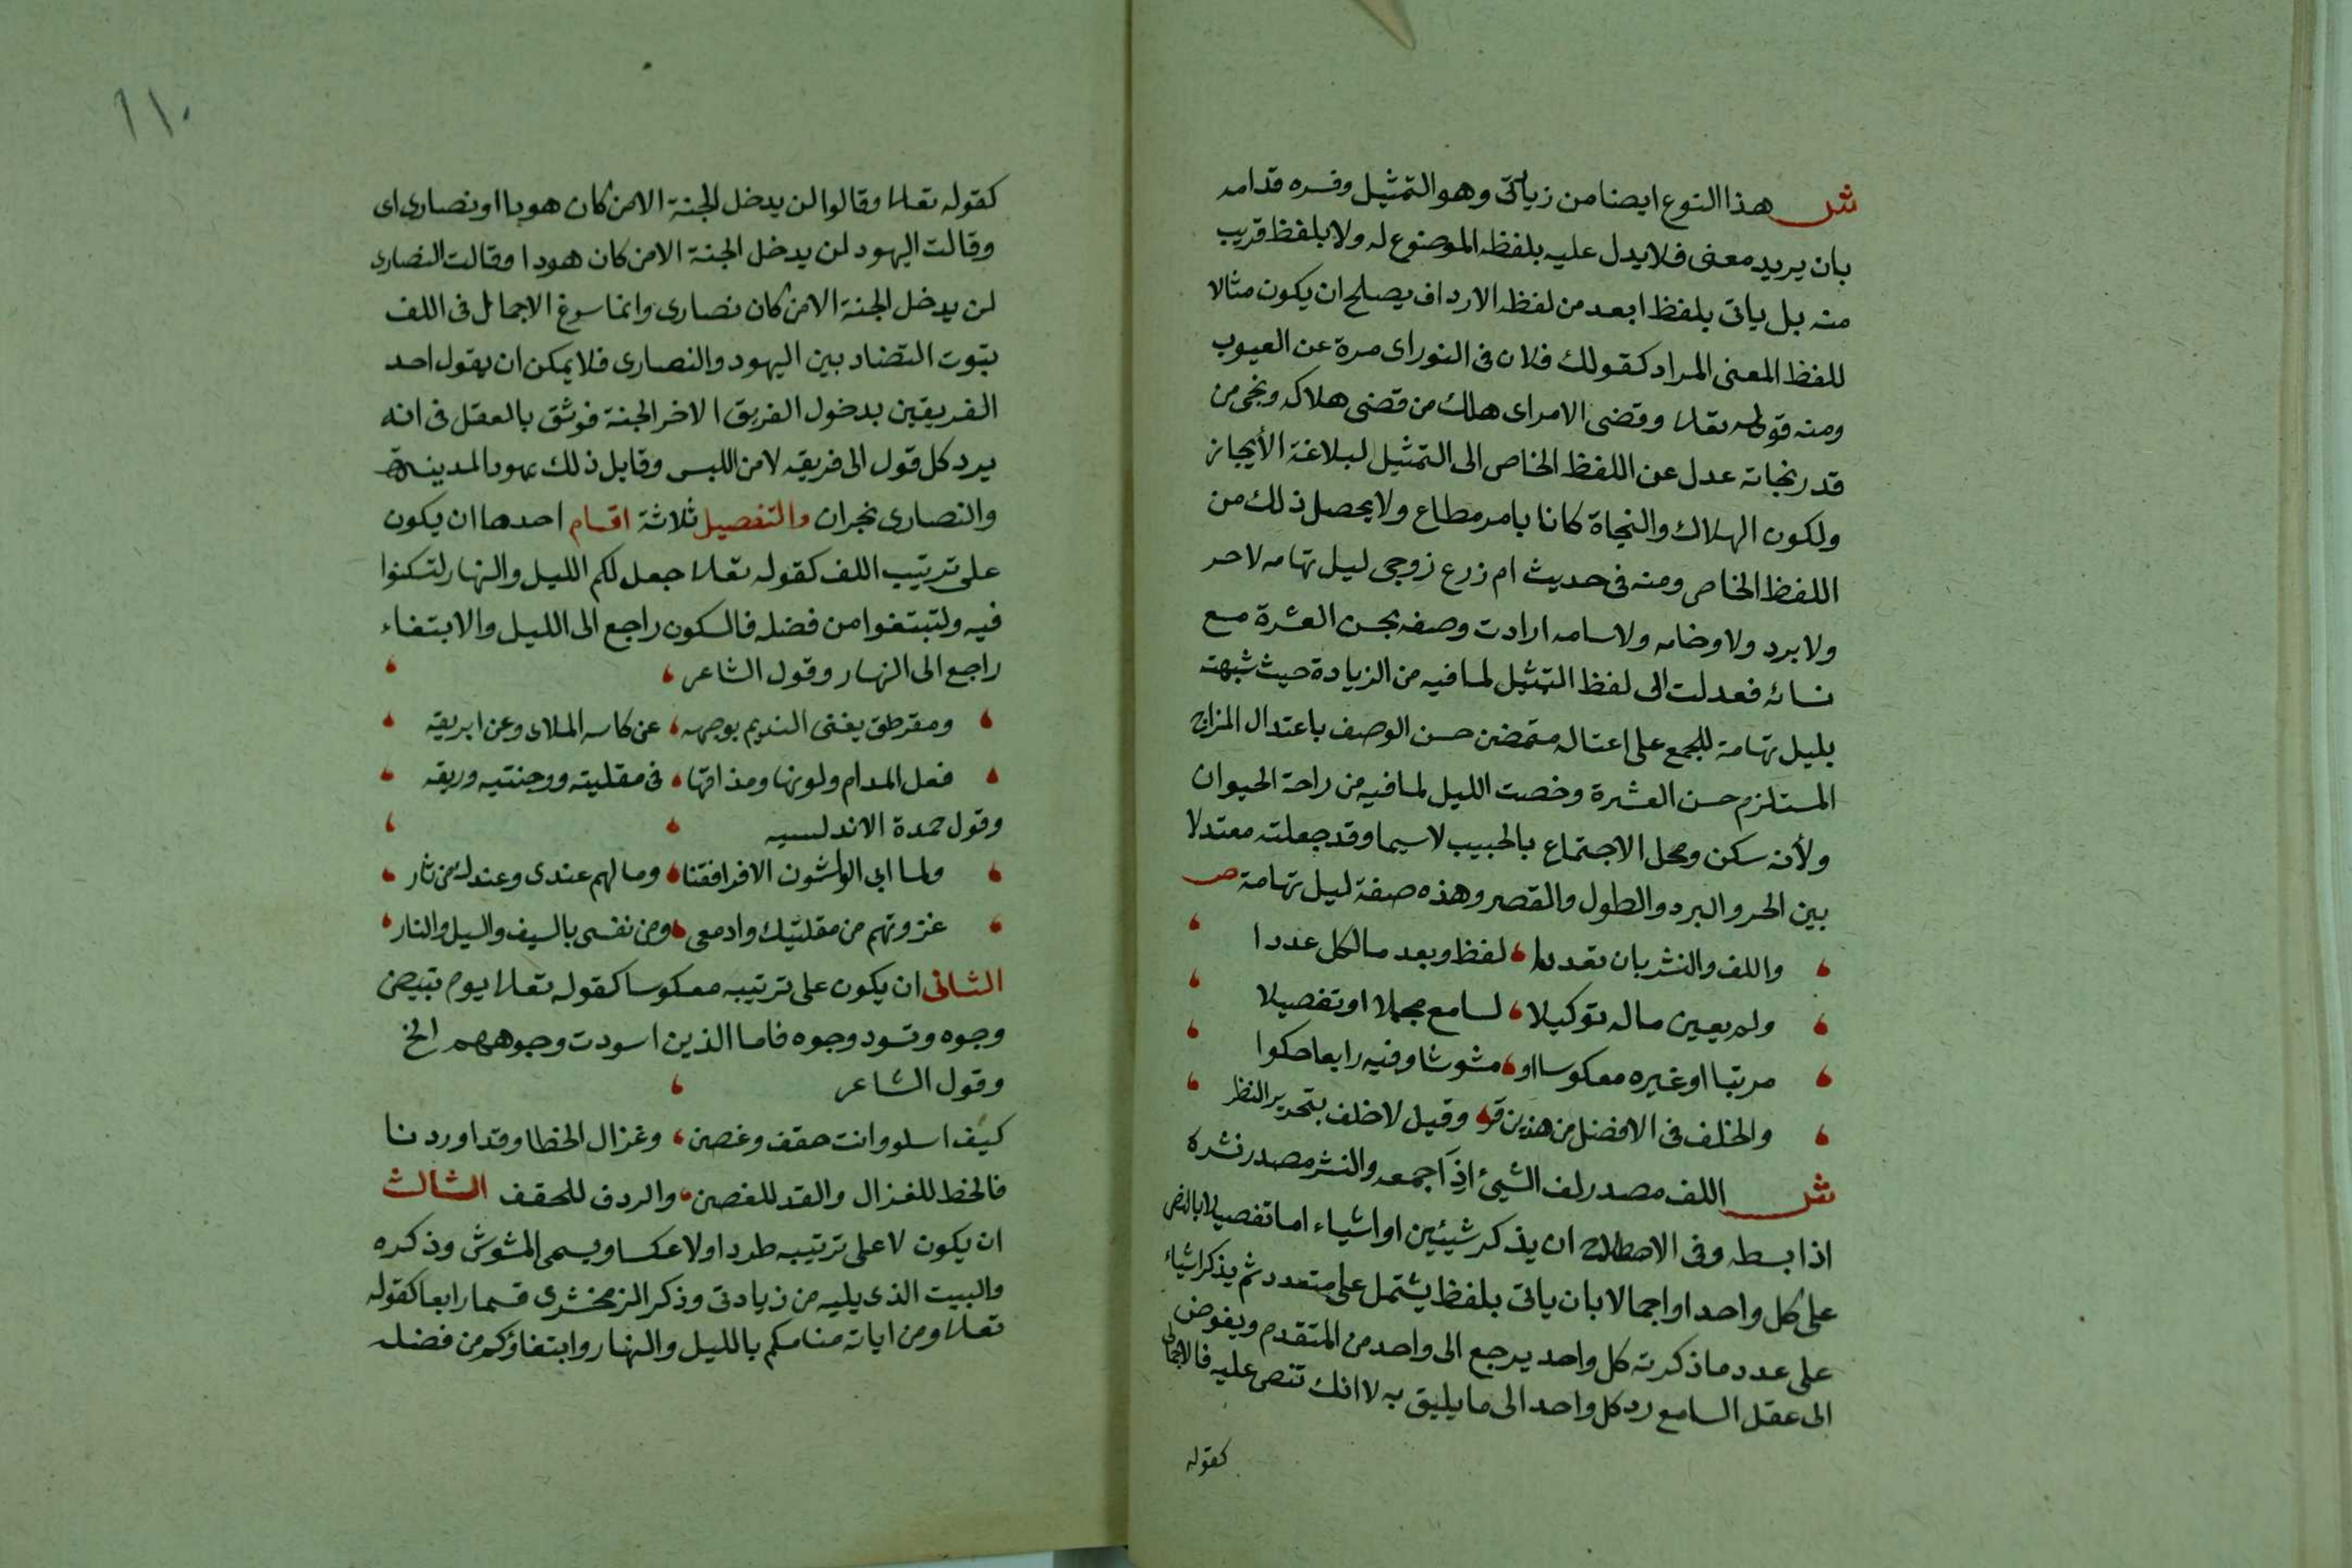 ش هذا النوع ايضا من زياتى وهو التمثيل وفسره قدامه
بان يريد معنى فلا يدل عليه بلفظه الموضوع له ولا بلفظ قريب
منه بل ياتى بلفظ ابعد من لفظ الارداف يصلح ان يكون مثالا
للفظ المعنى المراد كقولك فلان فى النور اى مرة عن العيوب
ومنه قوله تعالى وقضى الامر اى هلك من قضى هلاكه ونجى من
قدر نجاته عدل عن اللفظ الخاص الى التمثيل لبلاغة الأيجاز
ولكون الهلاك والنجاة كانا بامر مطاع ولا يحصل ذلك من
اللفظ الخاص ومنه فى حديث ام زرع زوجى ليل تهامه لا حر
ولا برد ولا وخامه ولا سامه ارادت وصفه بحسن العشرة مع
نسائه فعدلت الى لفظ التمثيل لما فيه من الزيادة حيث شبهته
بليل تهامة المجمع على اعتداله متضمن حسن الوصف باعتدال المزاج
المستلزم حسن العشرة وخصت الليل لما فيه من راحة الحيوان
ولأنه سكن ومحل الاجتماع بالحبيب لا سيما وقد جعلته معتدلا
بين الحر والبرد والطول والقصر وهذه صفة ليل تهامة ص
واللف والنشر بان تعددا لفظ وبعد ما لكل عددا
ولم يعين ماله توكيلا لسامع مجملا او تفصيلا
مرتبا او غيره معكوسا او مشوشا وفيه رابعا حكوا
والخلف فى الافضل من هذين قر وقيل لا خلف بتحرير النظر
ش اللف مصدر لف الشيئ اذا جمعه والنشر مصدر نشره
اذا بسطه وفى الاصطلاح ان يذكر شيئين او اشياء اما تفصيلا بالنص
على كل واحد او اجمالا بان ياتى بلفظ يشتمل على متعدد ثم يذكر اشياء
على عدد ما ذكرته كل واحد يرجع الى واحد من المتقدم ويفوض
الى عقل السامع رد كل واحد الى ما يليق به لا انك تنص عليه فالاجمالى
كقوله
١١٠
كقوله تعالى وقالوا لن يدخل الجنة الا من كان هودا او نصارى اى
وقالت اليهود لن يدخل الجنة الا من كان هودا وقالت النصارى
لن يدخل الجنة الا من كان نصارى وانما سوغ الاجمال فى اللف
ثبوت التضاد بين اليهود والنصارى فلا يمكن ان يقول احد
الفريقين بدخول الفريق الاخر الجنة فوثق بالعقل فى انه
يرد كل قول الى فريقه لامن اللبس وقايل ذلك يهود المدينة
والنصارى نجران والتفصيل ثلاثة اقسام احدها ان يكون
على ترتيب اللف كقوله تعالى جعل لكم الليل والنهار لتسكنوا
فيه ولتبتغوا من فضله فالسكون راجع الى الليل والابتغاء
راجع الى النهار وقول الشاعر
ومقرطق يغنى النديم بوجهه عن كاسه الملاى وعن ابريقه
فعل المدام ولونها ومذاقها فى مقلتيه ووجنتيه وريقه
وقول حمدة الاندلسيه
ولما ابى الواشون الا فراقنا وما لهم عندى وعندك من ثار
غزوتهم من مقلتيك وادمعى ومن نفسى بالسيف والسيل والنار
الثانى ان يكون على ترتيبه معكوسا كقوله تعالى يوم تبيض
وجوه وتسود وجوه فاما الذين اسودت وجوههم الخ
وقول الشاعر
كيف اسلو وانت حقف وغصن وغزال لحظا وقدا وردفا
فالحظ للغزال والقد للغصن والردف للحقف الثالث
ان يكون لا على ترتيبه طردا ولا عكسا ويسمى المشوش وذكره
والبيت الذى يليه من زيادتى وذكر الزمخشرى قسما رابعا كقوله
تعالى ومن اياته منامكم بالليل والنهار وابتغاؤكم من فضله